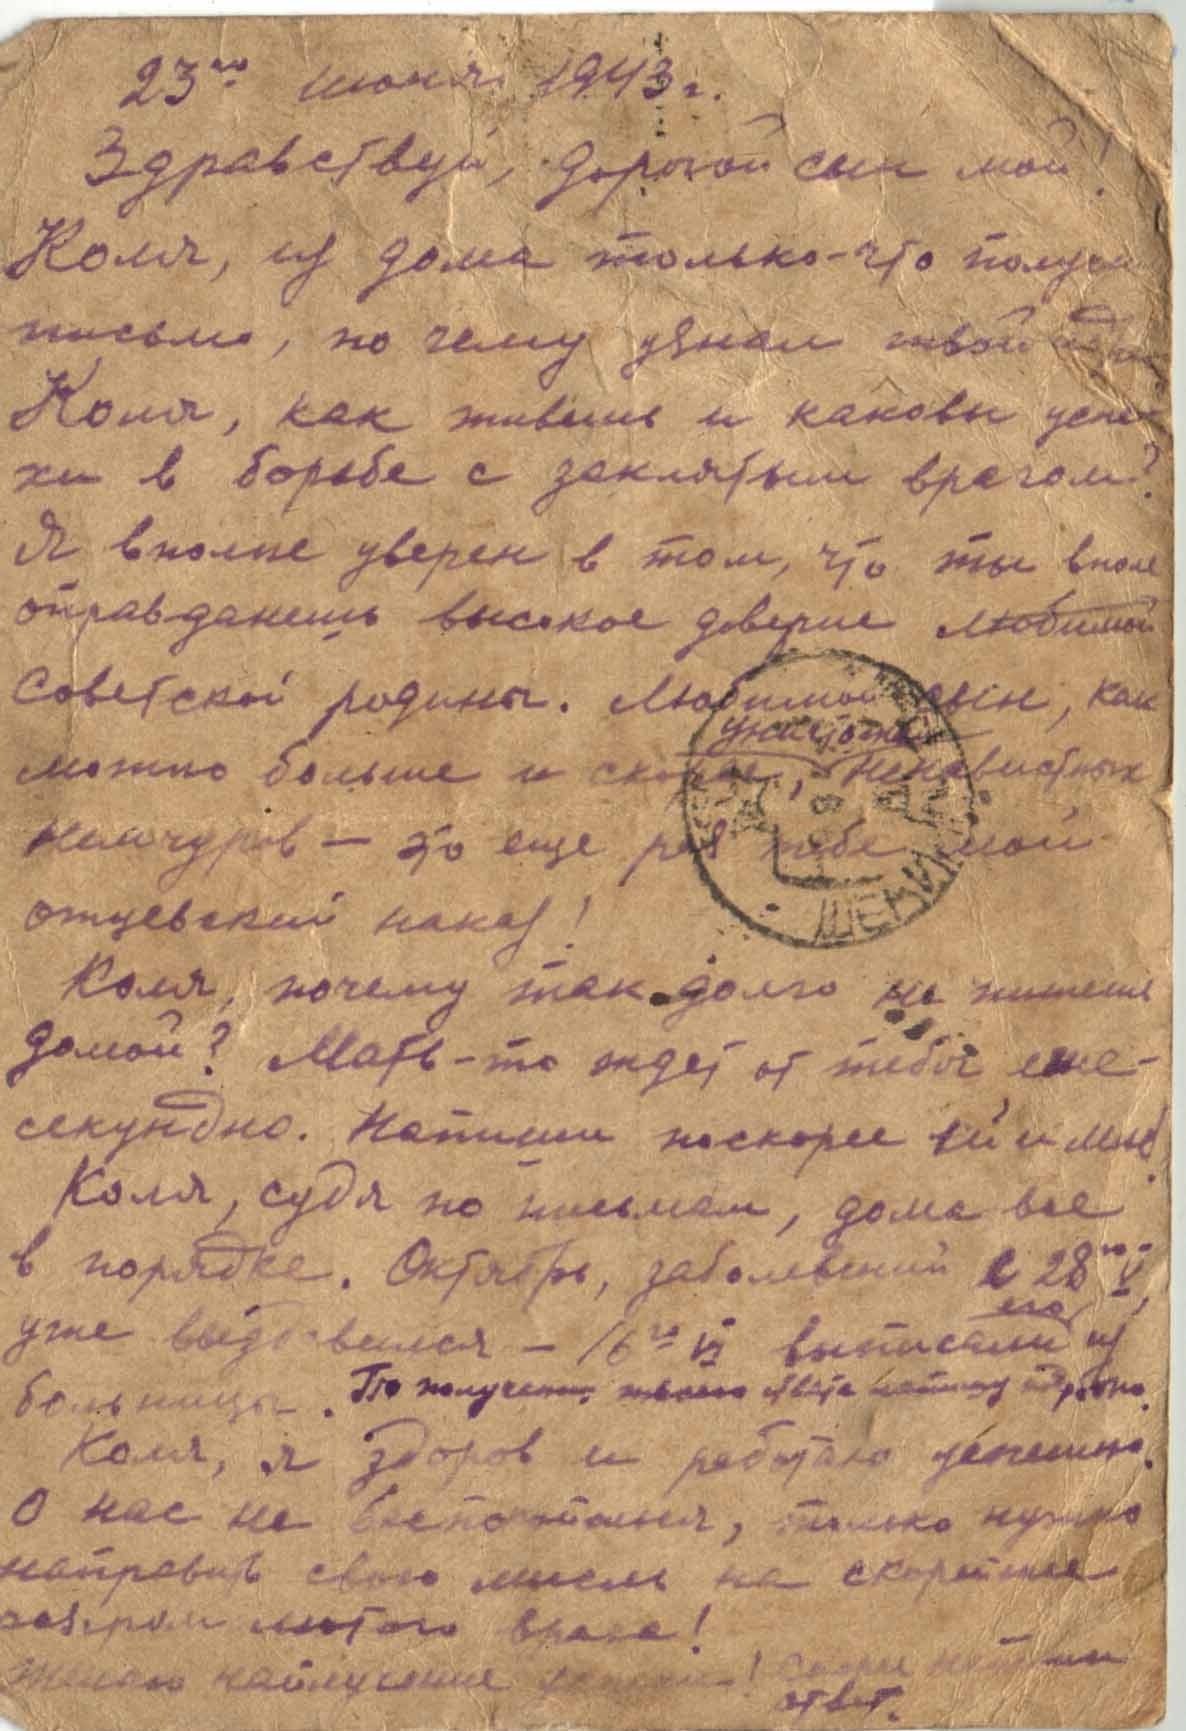 23го июня 1943г.
Здравствуй, дорогой сын мой!
Коля, из дома только-что получил
письмо, по чему узнал твой адрес.
Коля, как живешь и каковы успе-
хи в борьбе с заклятым врагом?
Я вполне уверен в том, что ты вполне
оправданешь высокое доверие любимой
Советской родины. Любимой сын, как
уничтожай
можно больше и скорее, ненавистных
немчуров — это еще раз тебе мой
отцевский наказ!
ШЕКИ
Коля, почему так долго не пишешь
домой? Мать-то ждет от тебя еже-
секундно. Напиши поскорее ей и мне!
Коля, судя по письмам, дома все
в порядке. Октябрь, заболевший с 28го V,
его
уже выздоравелся — 16го VI выписали из
больницы. По получении твоего ответа напишу подробно.
Коля, я здоров и работаю успешно.
О нас не беспокойся, только нужно
направить свою мысль на скорейше
разгром лютого врага!
Желаю наилучшие! Скорее напиши
ответ.